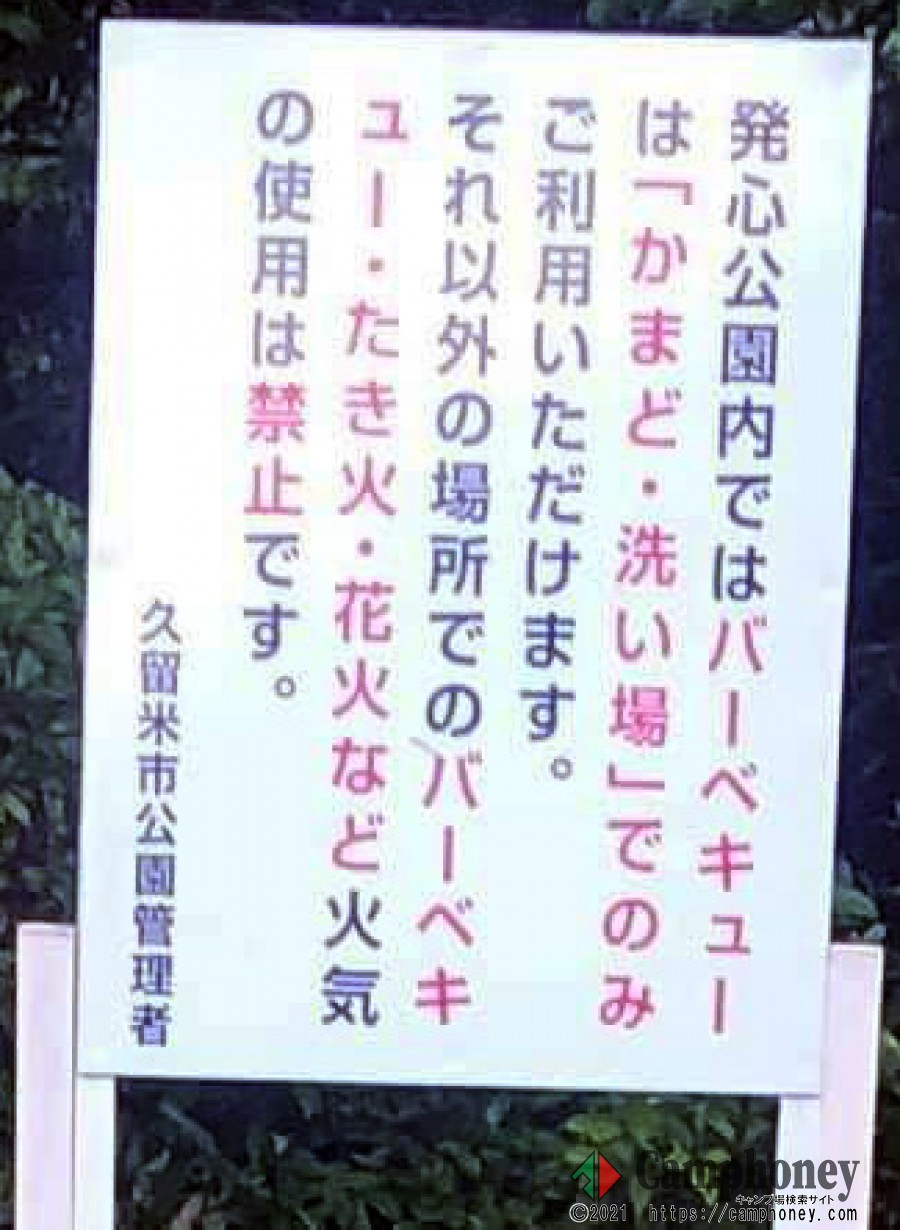 発心公園内ではバーベキュー
は「かまど・洗い場」でのみ
ご利用いただけます。
それ以外の場所でのバーベキ
ュー・たき火・花火など火気
の使用は禁止です。
久留米市公園管理者
Camphoney
キャンプ場検索サイト
©2021 https://camphoney.com